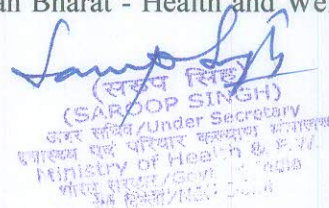 an Bharat - Health and We
(सरुप सिंह)
(SAROOP SINGH)
अवर सचिव/Under Secretary
स्वास्थ्य एवं परिवार कल्याण मंत्रालय
Ministry of Health & F.W.
भारत सरकार/Govt India
नई दिल्ली/New